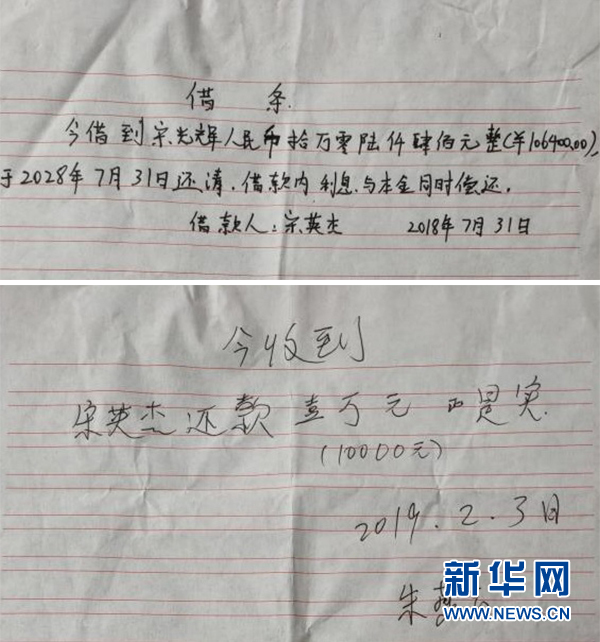 借 条
今借到宋光辉人民币拾万零陆仟肆佰元整(羊106400.00),
于2028年7月31日还清.借款内利息.与本金同时偿还.
借款人:宋英杰 2018年7月31日
今收到
宋英杰还款 壹万元 正是实.
(10000元)
2019.2.3日
朱
新华网
WWW.NEWS.CN